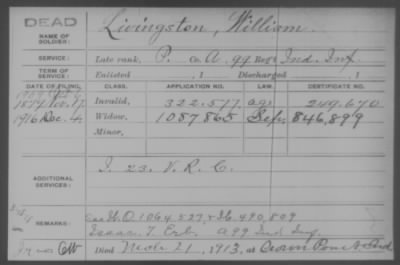 DEAD
NAME OF SOLDIER:
Livingston, William.
SERVICE:
Late rank, P. Co. A, 99 Reg't Ind. Inf.
TERM OF SERVICE:
Enlisted , 1 Discharged , 1
DATE OF FILING. CLASS. APPLICATION NO. LAW. CERTIFICATE NO.
Invalid, 322.577 249.670
1916 Dec. 4 Widow, 1087.865 846,899
Minor,
ADDITIONAL SERVICES:
I. 23. V. R. C.
REMARKS:
1064.527 490,809
Isaac T. Erb. A 99 Ind Inf
Died Mch 21, 1913, at Crown Point Ind